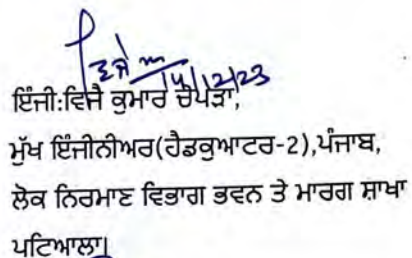 14/12/23
ਇੰਜੀ:ਵਿਜੈ ਕੁਮਾਰ ਚੋਪੜਾ,
ਮੁੱਖ ਇੰਜੀਨੀਅਰ(ਹੈਡਕੁਆਟਰ-2),ਪੰਜਾਬ,
ਲੋਕ ਨਿਰਮਾਣ ਵਿਭਾਗ ਭਵਨ ਤੇ ਮਾਰਗ ਸ਼ਾਖਾ
ਪਟਿਆਲਾ|